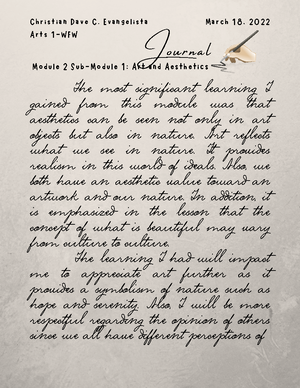 Christian Dave C. Evangelista March 18, 2022
Arts 1-WFW
Journal
Module 2 Sub-Module 1: Art and Aesthetics
The most significant learning I
gained from this module was that
aesthetics can be seen not only in art
objects but also in nature. Art reflects
what we see in nature. It provides
realism in this world of ideals. Also, we
both have an aesthetic value toward an
artwork and our nature. In addition, it
is emphasized in the lesson that the
concept of what is beautiful may vary
from culture to culture.
The learning I had will impact
me to appreciate art further as it
provides a symbolism of nature such as
hope and serenity. Also, I will be more
respectful regarding the opinion of others
since we all have different perceptions of